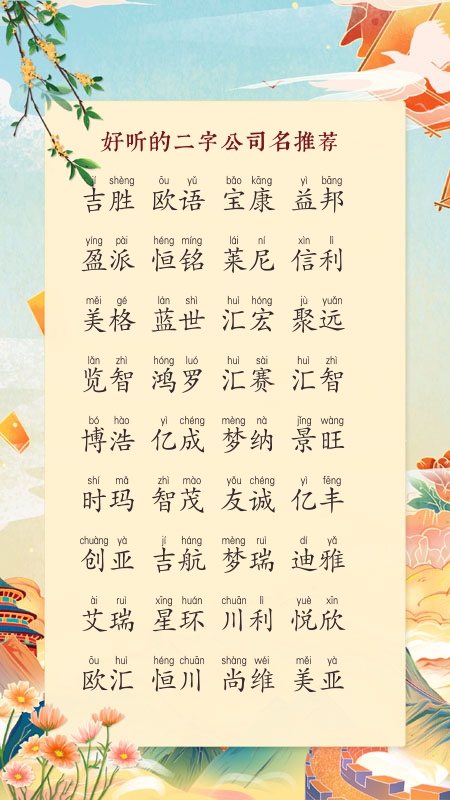 好听的二字公司名推荐
jí shèng ōu yǔ bǎo kāng yì bāng
吉胜 欧语 宝康 益邦
yíng pài héng míng lái ní xìn lì
盈派 恒铭 莱尼 信利
měi gé lán shì huì hóng jù yuǎn
美格 蓝世 汇宏 聚远
lǎn zhì hóng luó huì sài huì zhì
览智 鸿罗 汇赛 汇智
bó hào yì chéng mèng nà jǐng wàng
博浩 亿成 梦纳 景旺
shí mǎ zhì mào yǒu chéng yì fēng
时玛 智茂 友诚 亿丰
chuàng yà jí háng mèng ruì dí yǎ
创亚 吉航 梦瑞 迪雅
ài ruì xīng huán chuān lì yuè xīn
艾瑞 星环 川利 悦欣
ōu huì héng chuān shàng wéi měi yà
欧汇 恒川 尚维 美亚